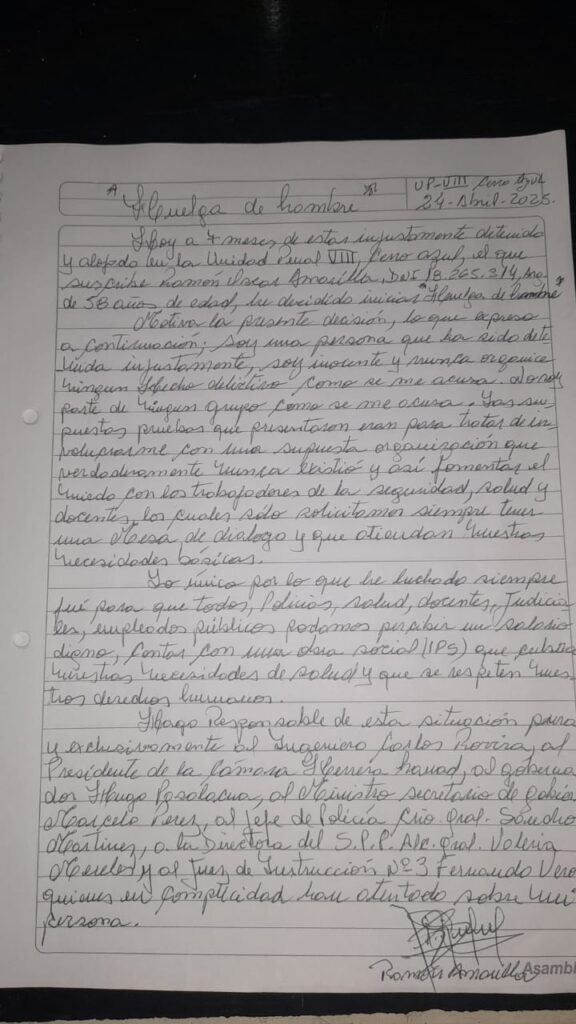 UP-VIII Cerro Azul
24-Abril-2025.
"Huelga de hombre"
Hoy a 7 meses de estar injustamente detenido
y alojado en la Unidad Penal VIII, Cerro azul, el que
suscribe Ramón Amarilla, DNI 18.265.314, Arg.
de 58 años de edad, he decidido iniciar "Huelga de hambre"
Motiva la presente decisión, lo que expreso
a continuación; soy una persona que ha sido dete
nida injustamente, soy inocente y nunca organice
ningun Hecho delictivo como se me acusa. No soy
parte de ningun grupo como se me acusa. Las su-
puestas pruebas que presentaron eran para tratar de in
volucrarme con una supuesta organización que
verdaderamente nunca existió y así fomentar el
miedo con los trabajadores de la seguridad, salud y
docentes, los cuales sólo solicitamos siempre tener
una Mesa de dialogo y que atiendan nuestras
necesidades básicas.
Lo único por lo que he luchado siempre
fué para que todos, Policias, salud, docentes, Judicia
les, empleados públicos podamos percibir un salario
digno, contar con una obra social (IPS) que cubra
nuestras necesidades de salud y que se respeten nues
tros derechos humanos.
Hago Responsable de esta situación pura
y exclusivamente al Ingeniero Carlos Rovira, al
Presidente de la Cámara Herrera hauad, al goberna
dor Hugo Pasalacua, al Ministro secretario de gobier
Marcelo Perez, al jefe de Policía Crio. Gral. Sandro
Martinez, a la Directora del S.P.P. Alc. Gral. Valeria
Mereles y al Juez de Instrucción Nº3 Fernando Vero
quienes en complicidad han atentado sobre mi
persona.
Ramón Amarilla
Asambl